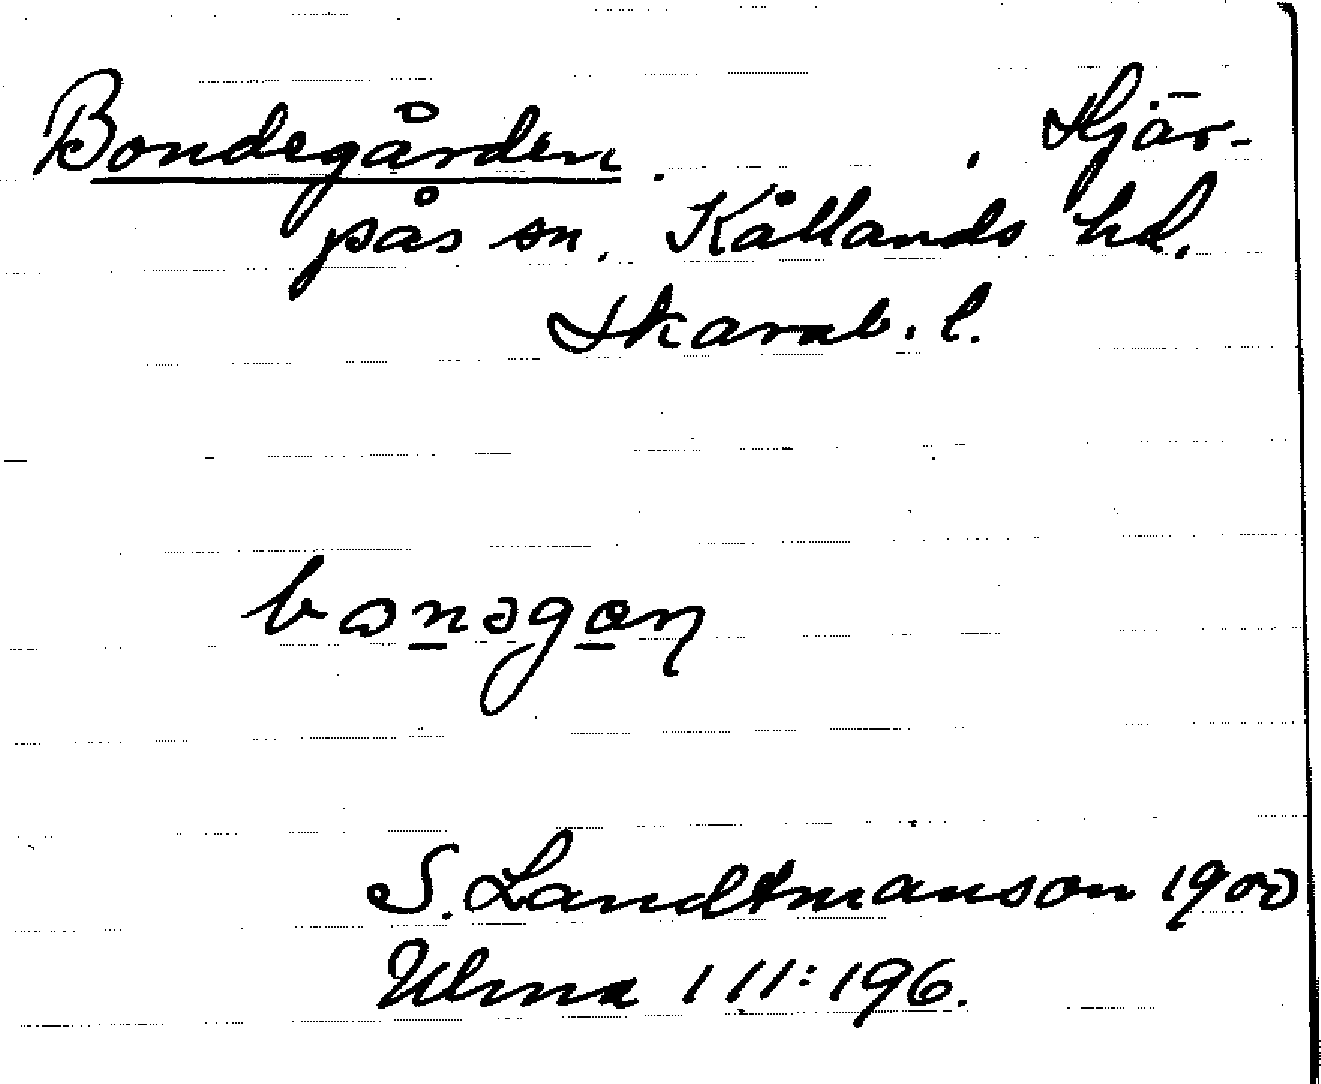 Bondegården. , Skjär-
pås sn. Kållands hd.
Skarab. l.
bonəgɷn
S. Landtmanson 1900
Ulma 111:196.